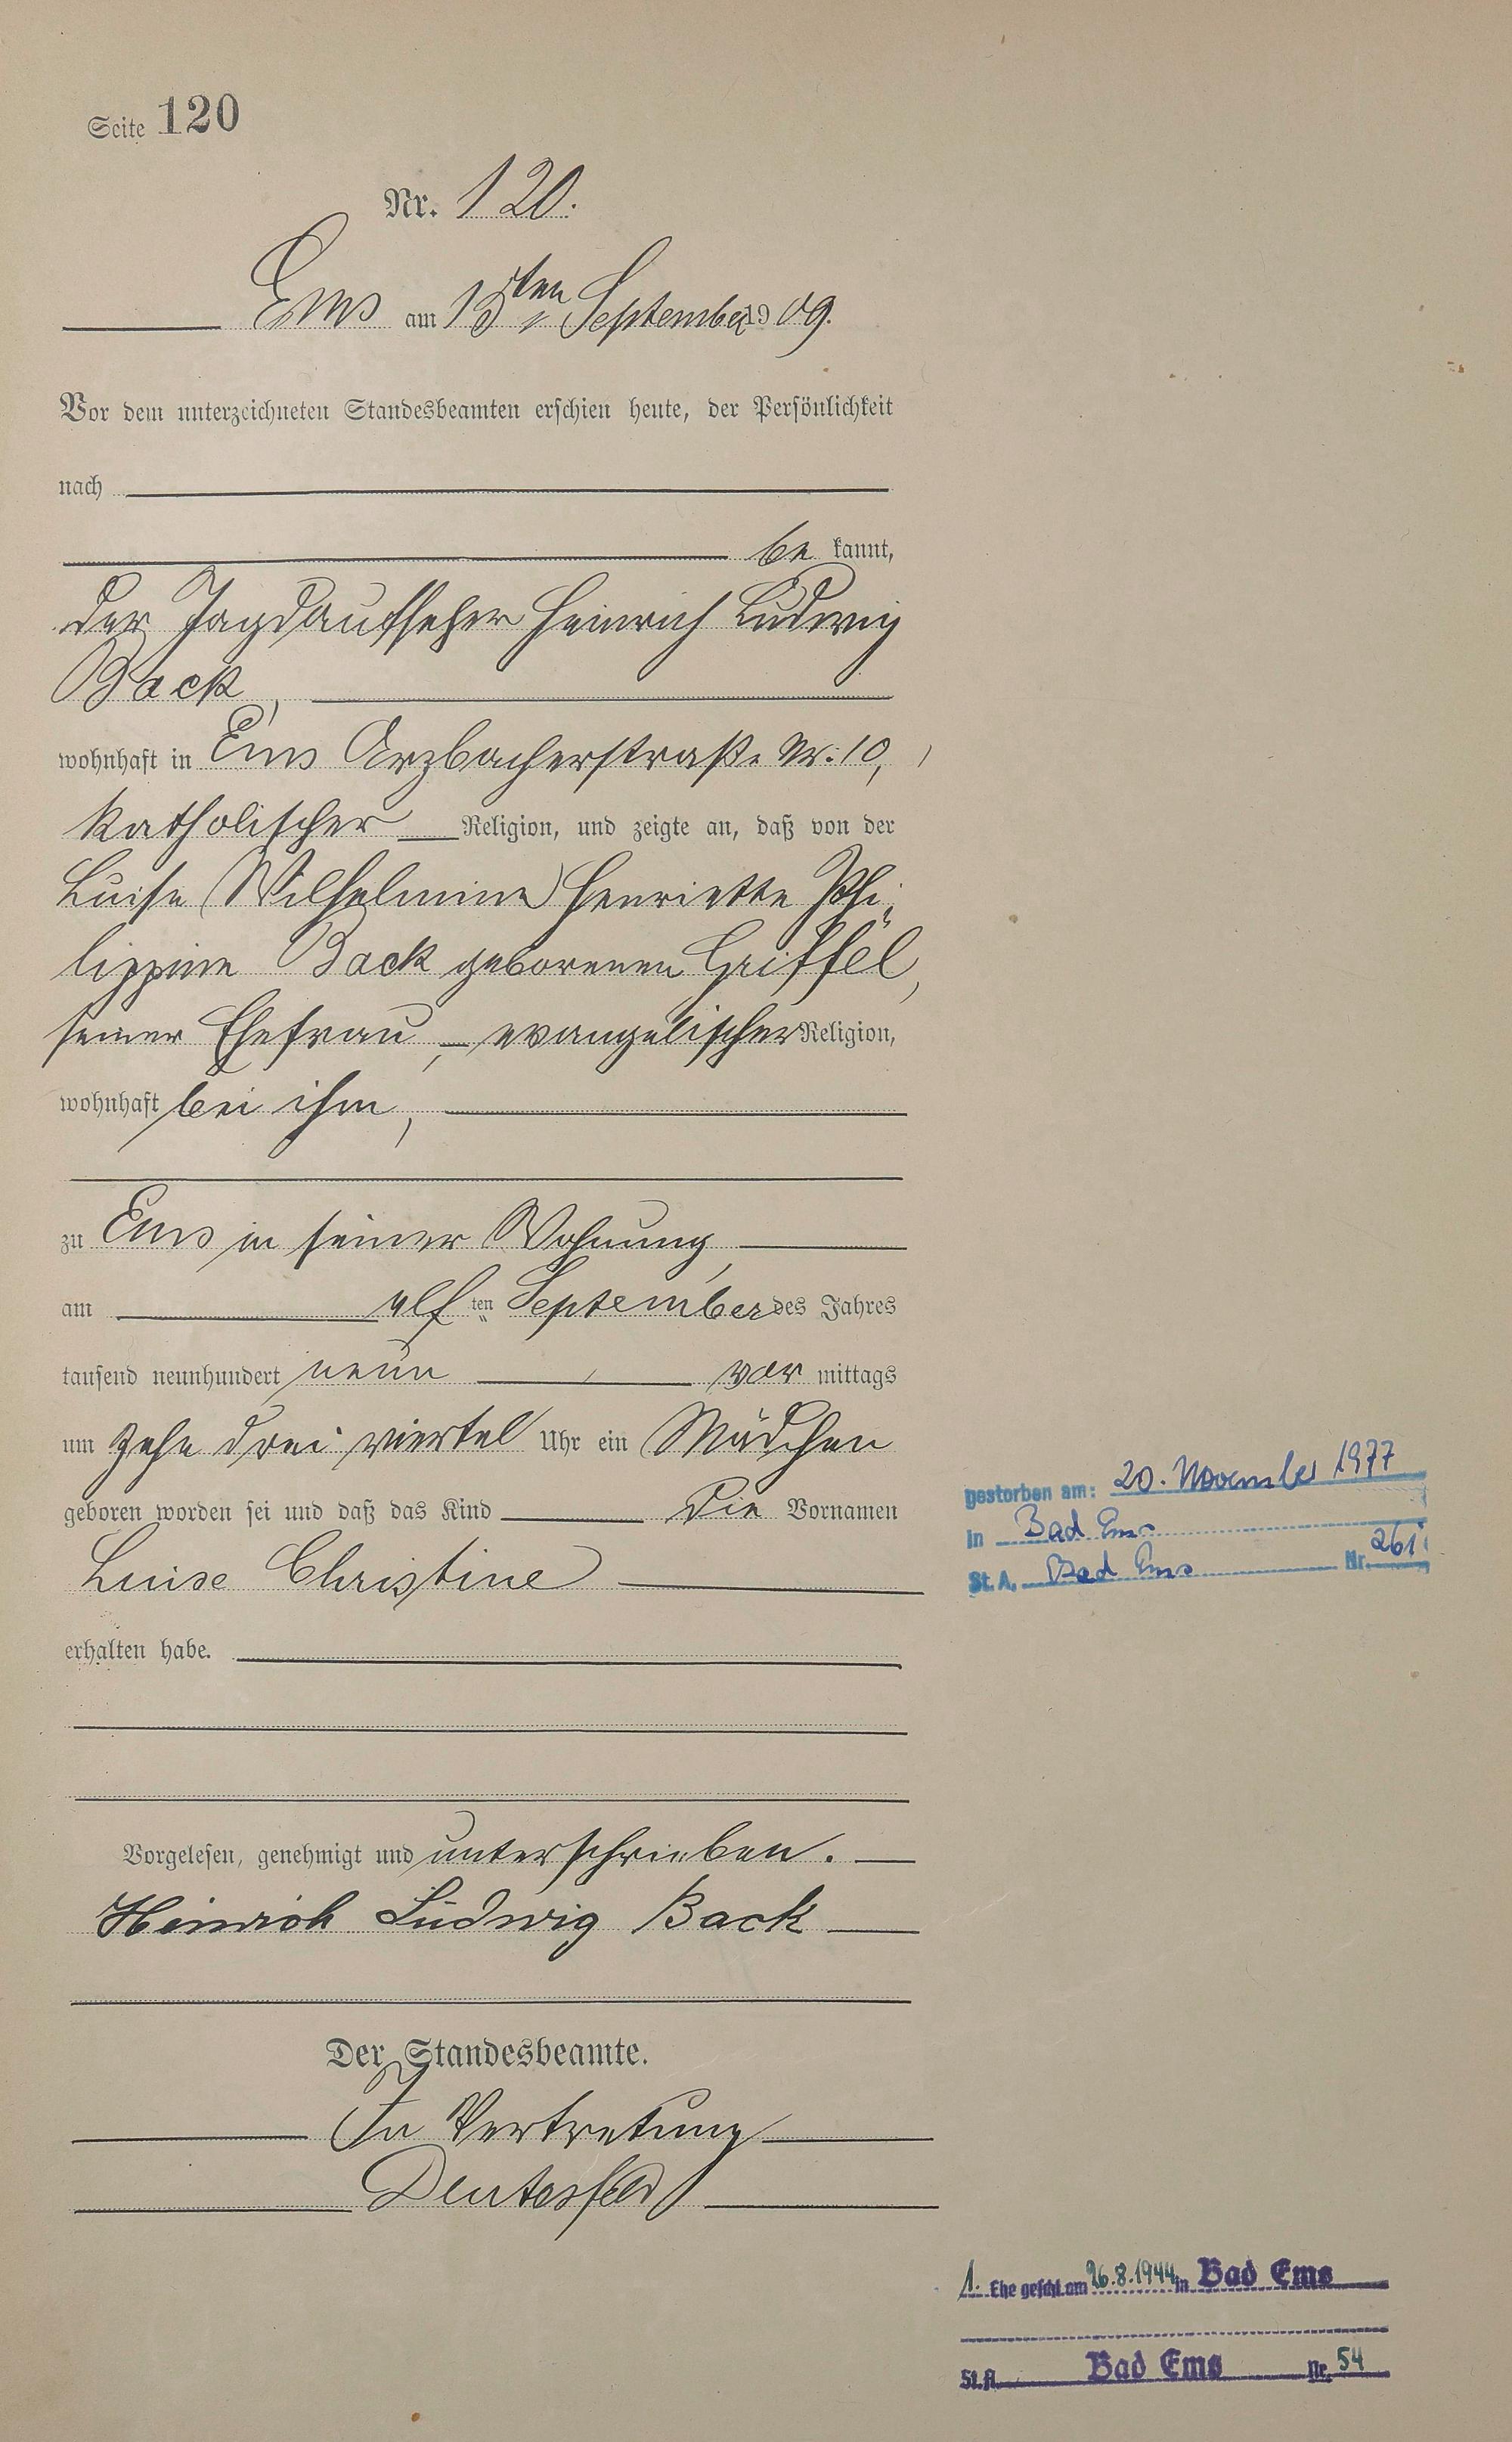 Seite 120
Nr. 120.
Ems am 15ten September 1909.
Vor dem unterzeichneten Standesbeamten erschien heute, der Persönlichkeit
nach
be kannt,
der Jagdaufseher Heinrich Ludwig
Back,
wohnhaft in Ems Arzbacherstraße Nr: 10,
katholischer Religion, und zeigte an, daß von der
Luise (Wilhelmine) Henriette Phi-
lippine Back geborenen Griffel,
seiner Ehefrau, evangelischer Religion,
wohnhaft bei ihm,
zu Ems in seiner Wohnung,
am elf ten September des Jahres
tausend neunhundert neun vor mittags
um zehn drei viertel Uhr ein Mädchen
geboren worden sei und daß das Kind die Vornamen
Luise Christine
erhalten habe.
Vorgelesen, genehmigt und unterschrieben.
Heinrich Ludwig Back
Der Standesbeamte.
In Vertretung
gestorben am: 20. November 1977
in Bad Ems
St. A. Bad Ems Nr. 261
1. Ehe geschl. am 26.8.1944 in Bad Ems
St.A. Bad Ems Nr. 54